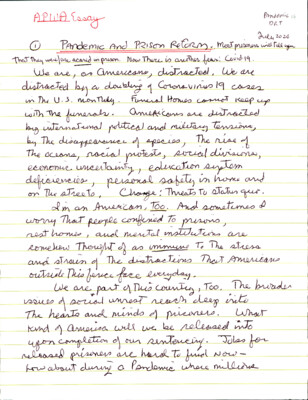 APWA Essay
Pandemic
OCT
July 2020
① Pandemic And Prison Reform. Most prisoners will tell you
that they were/are scared in prison. Now There is another fear: Covid 19.
We are, as Americans, distracted. We are
distracted by a doubling of Coronavirus 19 cases
in the U.S. monthly. Funeral Homes cannot keep up
with the funerals. Americans are distracted
by international political and military tensions,
by the disappearance of species, The rise of
the oceans, racial protests, social divisions,
economic uncertainty, education system
deficiencies, personal safety in home and
on the streets. Change: Threats to status quo.
I'm an American, Too. And sometimes I
worry That people confined to prisons,
rest homes, and mental institutions are
somehow Thought of as immune to The stress
and strain of The distractions That Americans
outside This fence face everyday.
We are part of This country, Too. The broader
issues of social unrest reach deep into
The hearts and minds of prisoners. What
kind of America will we be released into
upon completion of our sentencing. Jobs for
released prisoners are hard to find now—
how about during a Pandemic where millions